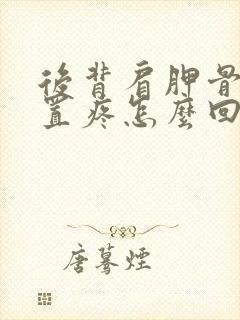 後背肩胛骨
置疼怎麼回
唐蓦煙